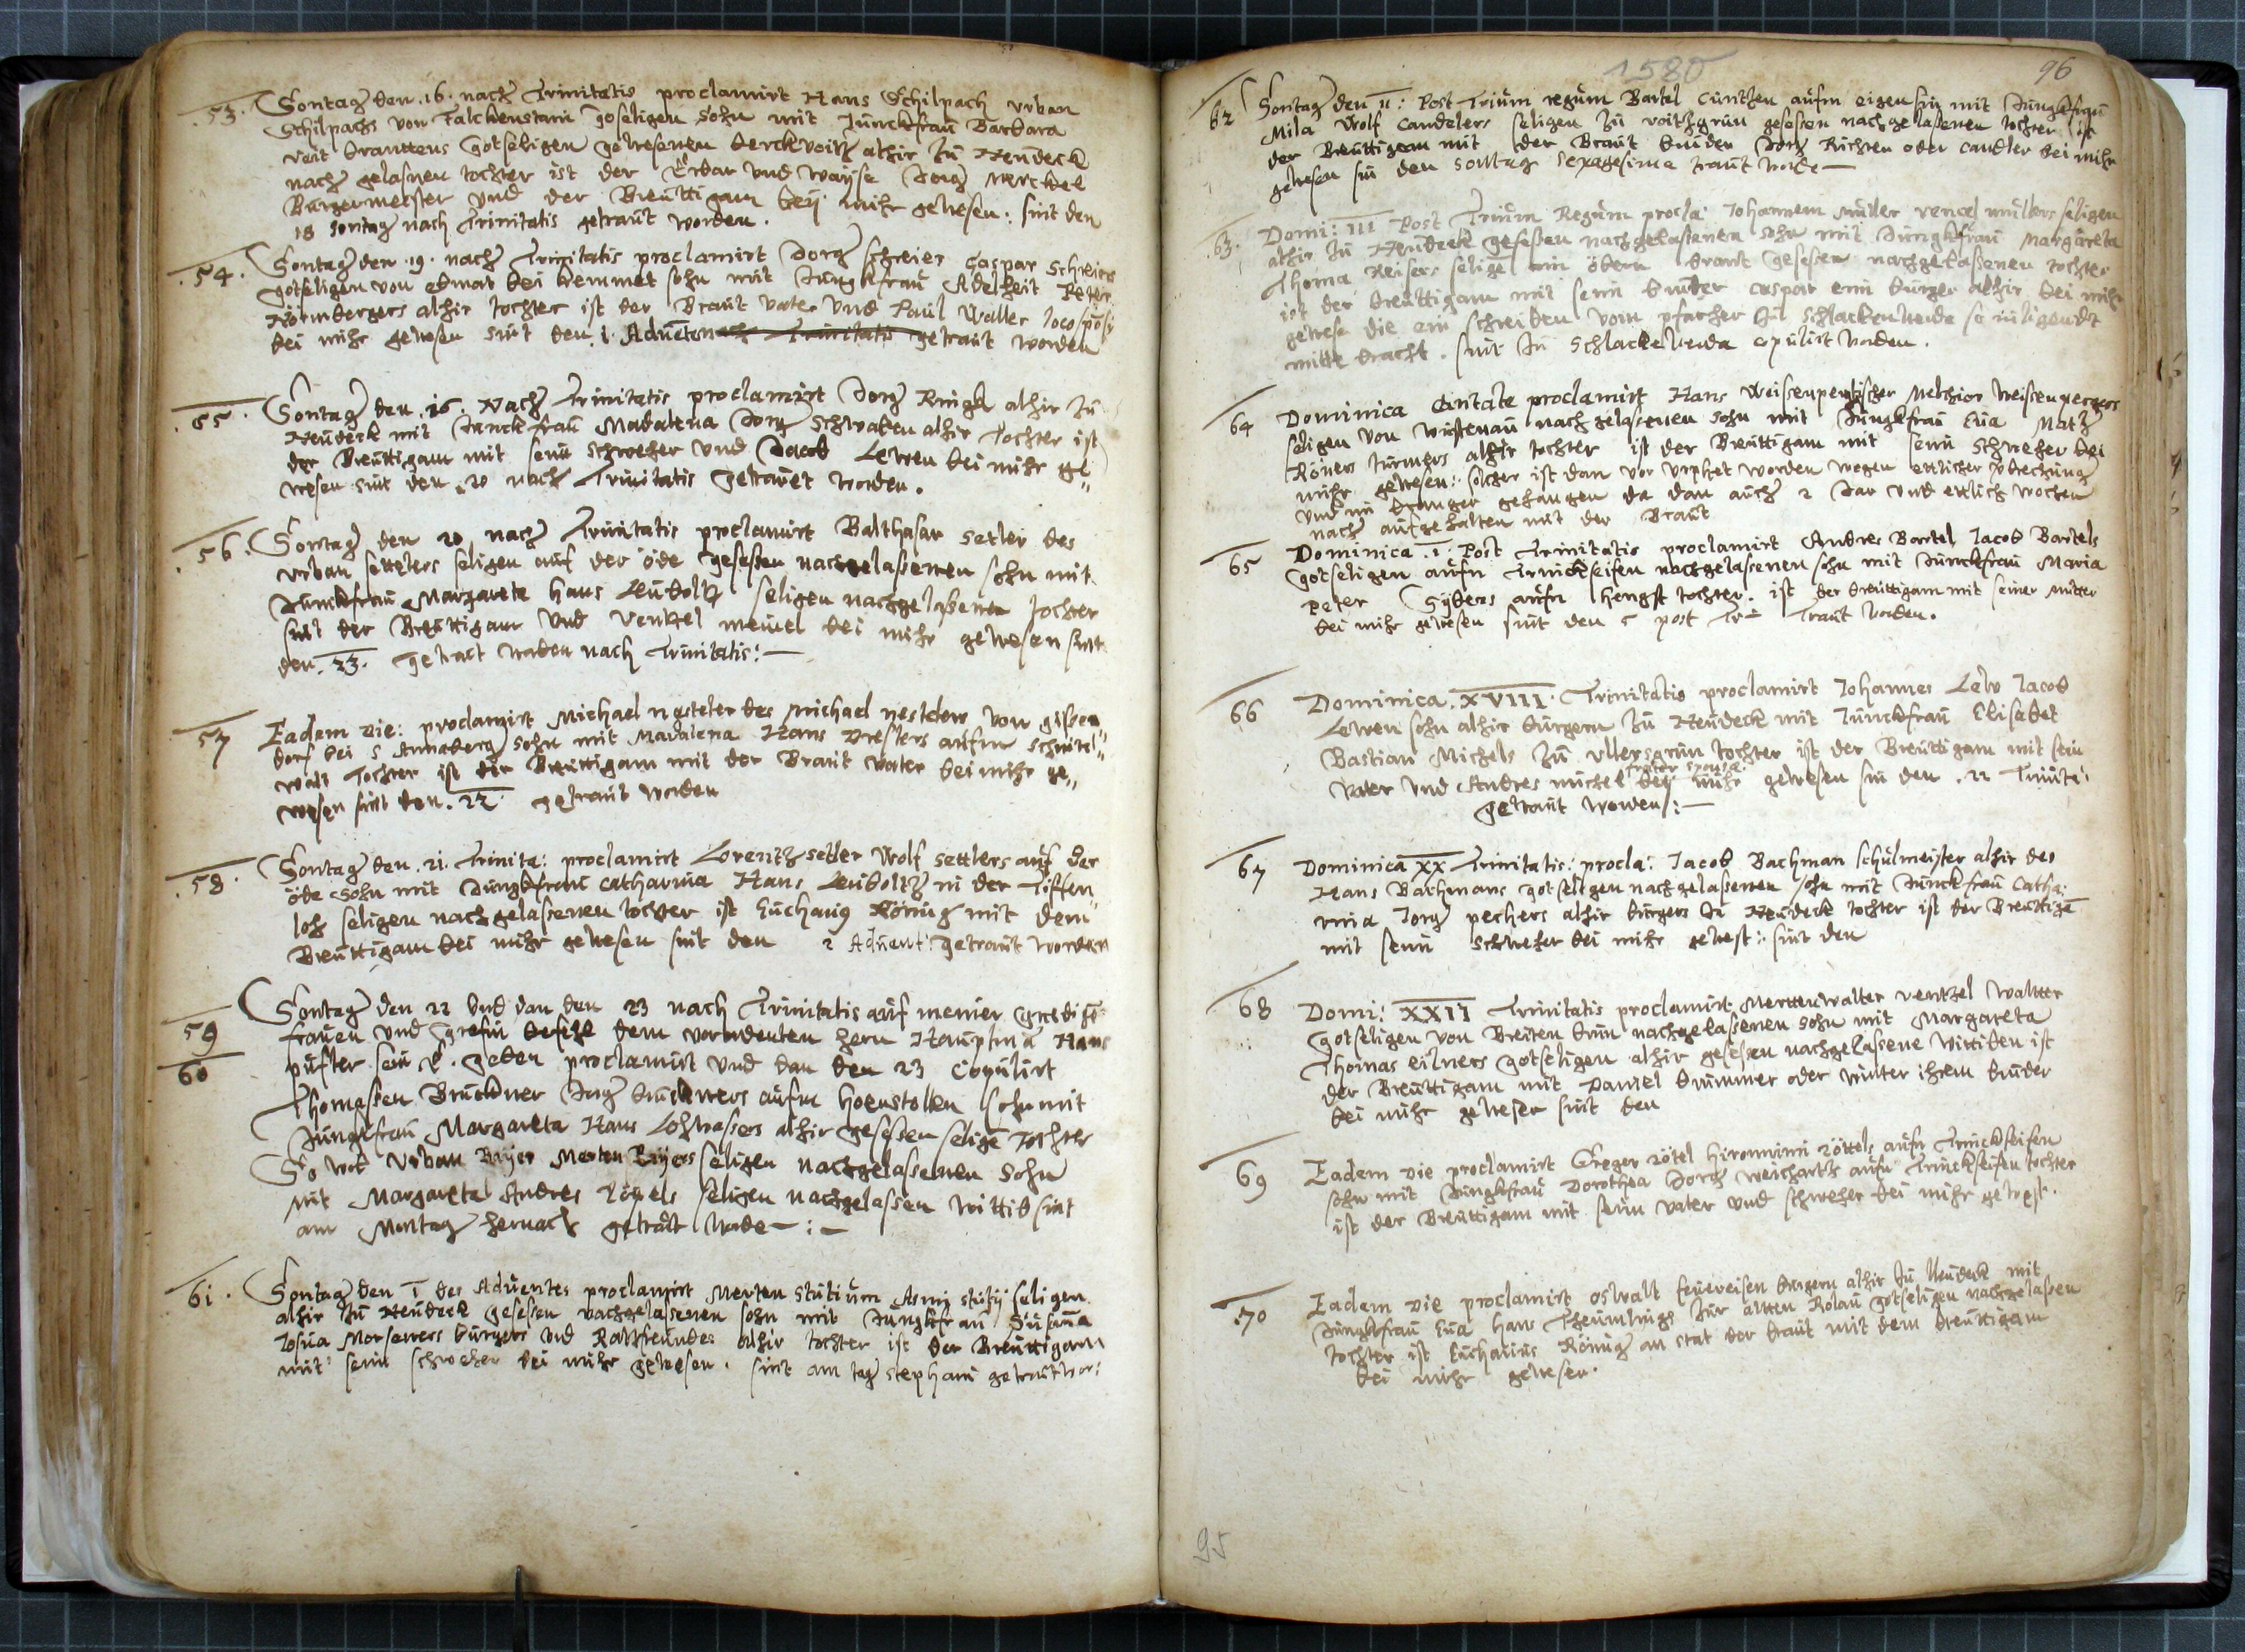 53. Sontag den .16. nach Trinitatis proclamirt Hans Schilpach Vrban
Schilpachs von Falckenstein goseligen Sohn mit Junckfrau Barbara
veit Gotseligen gewesenen alhir zu Neudeck
nach gelasnen tochter ist der Erbar und weyse Jorg Merckel
Burgermeister und der Breuttigam bey mihr gewesen: sint den
18 sontag nach Trinitatis getraut worden.
54. Sontag den .19. nach Trinitatis proclamirt Jorg schreier Caspar Schreiers
gotseligen von bei sohn mit Jungkfrau Adelheit
alhir tochter ist der Braut vater und Paul Walter loco
bei mihr gewesen sint den .1. getraut worden
55. Sontag den .16. Nach Trinitatis proclamirt Jorg Ringk alhir zu
Neudeck mit Junckfrau Madalena Jorg Schwaben alhir Tochter ist
der Breuttigam mit seim schweher und Jacob Lewen bei mihr ge„
wesen sint den .20 nach Trinitatis getrauet worden.
56. Sontag den 20 nach Trinitatis proclamirt Balthasar setler des
Vrban settlers seligen auf der öde gesessen nachgelassenen sohn mit
Junckfrau Margareta Hans Leuboltz seligen nachgelassenen tochter
sint der Breuttigam und Ventzel meinel bei mihr gewesen sint
den .23. getraut worden nach Trinitatis:—
57 Eadem die: proclamirt Michael nesteler des michael nestlers von
dorf bei S Annaberg sohn mit Madalena Hans aufm
walt Tochter ist der Breuttigam mit der Braut vater bei mihr ge„
wesen sint den .22. getraut worden
58. Sontag den .21. Trinita: proclamirt Lorentz setler Wolf settlers auf der
öde sohn mit Jungkfrau Catharina Hans Leuboltz in der Tiffen„
loh seligen nachgelassenen tochter ist Eucharig Könnig mit dem
Breuttigam bei mihr gewesen sint den 2 Advent: getraut worden
59 Sontag den 22 und dan den 23 nach Trinitatis auf meiner
60 frauen und grefin befehl dem hern Hauptma Hans
geben proclamirt und dan den 23 Copulirt
Thomassen Bruckner Jorg bruckners aufm Hoenstollen sohn mit
Jungkfrau Margareta Hans Lohwassers alhir gesessen selige Tochter
So wol Vrban Beyer Merten Beyers seligen nachgelassenen sohn
mit Margareta Andres seligen nachgelassen wittib sint
am Montag hernach getraut worde—:—
61. Sontag den 1 des Adventes proclamirt Merten seligen
alhir zu Neudeck gesessen nachgelassenen sohn mit Jungkfrau Susanna
Josua burgers und Rattfreundes alhir tochter ist der Breuttigam
mit seim schweher bei mihr gewesen. sint am tag Stephani getraut wor:
1580 96
62 Sontag den II: Post Trium regum Bartel Cuntzen aufm eigen mit Jungkfrau
Mila Wolf Candelers seligen zu voitzgrun gesessen nachgelassenen tochter ist
der Breuttigam mit der Braut bruder Jorg Richter oder Candler bei mihr
gewesen sin den sontag Sexagesima traut worde—
63. Domi: III Post Trium Regum procla: Johannem muller vencel mullers seligen
alhir zu Neudeck gesessen nachgelassenen sohn mit Jungkfrau Margareta
Thoma Reisers selige im öbern gesessen nachgelassenen tochter
ist der breuttigam mit seim bruder caspar ein burger alhir bei mihr
gewese die ein schreiben vom pfarher zu Schlackenwerde
mitte bracht. sint zu Schlackewerda copulirt worden.
64 Dominica Cantate proclamirt Hans Melchior
seligen von nachgelassenen sohn mit Jungkfrau Eua Matz
alhir tochter ist der Breuttigam mit seim Schweher bei
mihr gewesen: solcher ist dan vor worden wegen etlicher
und im gefangen da dan auch 2 Jar und etlich wochen
nach aufgehalten mit der Braut
65 Dominica .1. Post Trinitatis proclamirt Andres Bartel Jacob Bartels
gotseligen aufn Trinckseifen nachgelassenen sohn mit Junckfrau Maria
peter aufn Hengst tochter. ist der breuttigam mit seiner mutter
bei mihr gewesen sint den 5 post Tr— Traut worden.
66 Dominica .XVIII. Trinitatis proclamirt Johannes Lew Jacob
Lewen sohn alhir burgern zu Neudeck mit Junckfrau Elisabet
Bastian Michels zu Vllersgrun tochter ist der Breuttigam mit sein
frater sponsae
vater und Andres michel bey mihr gewesen sin den .22 Trinita:
getraut worden:—
67 Dominica XX Trinitatis: procla: Jacob Bachman schulmeister alhir des
Hans Bachmans gotseligen nachgelassenen sohn mit Junckfrau Catha:
rina Jorg pechers alhir burgers zu Neudeck tochter ist der Breuttige
mit seim Schweher bei mihr gewest: sint den
68 Domi: XXII Trinitatis proclamirt Merten walter ventzel Waltter
gotseligen von Breiten brun nachgelassenen sohn mit Margareta
Thomas eilners gotseligen alhir gesessen nachgelassene Wittiben ist
der Breuttigam mit Daniel brummer oder winter ihrem bruder
bei mihr gewesen sint den
69 Eadem die proclamirt Greger rötel Hironimi röttels aufn Trinckseifen
sohn mit Jungkfrau Dorothea Jorg weicharts aufn Trinckseifen tochter
ist der Breuttigam mit seim vater und schweher bei mihr gewest.
70 Eadem die proclamirt Oswalt burgern alhir zu Neudeck mit
Jungkfrau Eua Hans zur alten Rolau gotseligen nachgelassen
tochter ist Eucharius Könnig an stat der braut mit dem breuttigam
bei mihr gewesen.
95